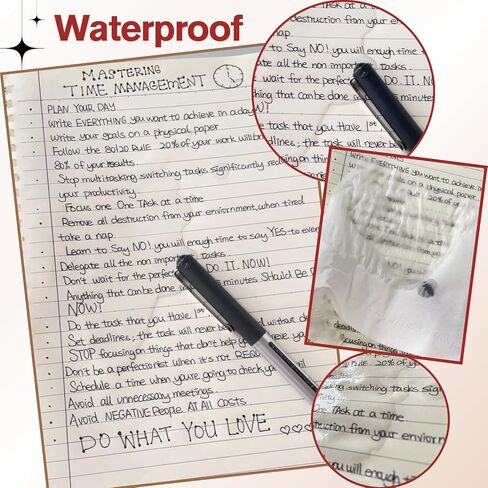 Waterproof
MASTERING
TIME MANAGEMENT
PLAN YOUR DAY
Write EVERYTHING you want to achieve in a day
Write your goals on a physical paper
Follow the 80/20 RULE 20% of your work will
80% of your results.
Stop multitasking switching tasks significantly
your productivity.
Focus one One Task at a time
Remove all destraction from your envirorment, when tired
take a nap.
Learn to Say NO! you will enough time to say YES to
Delegate all the non tasks.
Don't wait for the DO. IT. NOW!
Anything that can be done minutes Should Be
NOW!
Do the task that you have 1st
Set deadlines, the task will never be without
STOP focusing on things don't help
Don't be a perfectionist when it's not
Schedule a time when you're going to check you
Avoid all unnecessary meetings.
Avoid NEGATIVE PEOPLE AT All COSTS
DO WHAT YOU LOVE
Task at a
destruction from your
nap
to Say NO! you will enough time
all the non tasks.
wait for the DO. IT. N
that can be done minutes
the task that you have 1st
deadlines, the task will never
Write EVERYTHING you want to achieve in
goals on a physical paper
20% of your
at a time
deadlines
focusing on things
switching tasks
One Task at a time
from your
you will enough